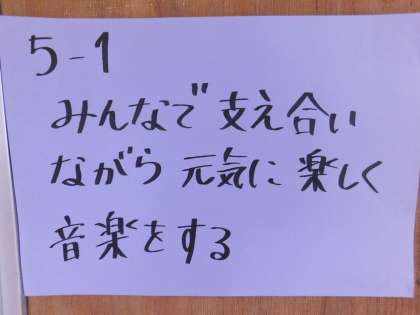 5-1
みんなで支え合い
ながら 元気に 楽しく
音楽をする